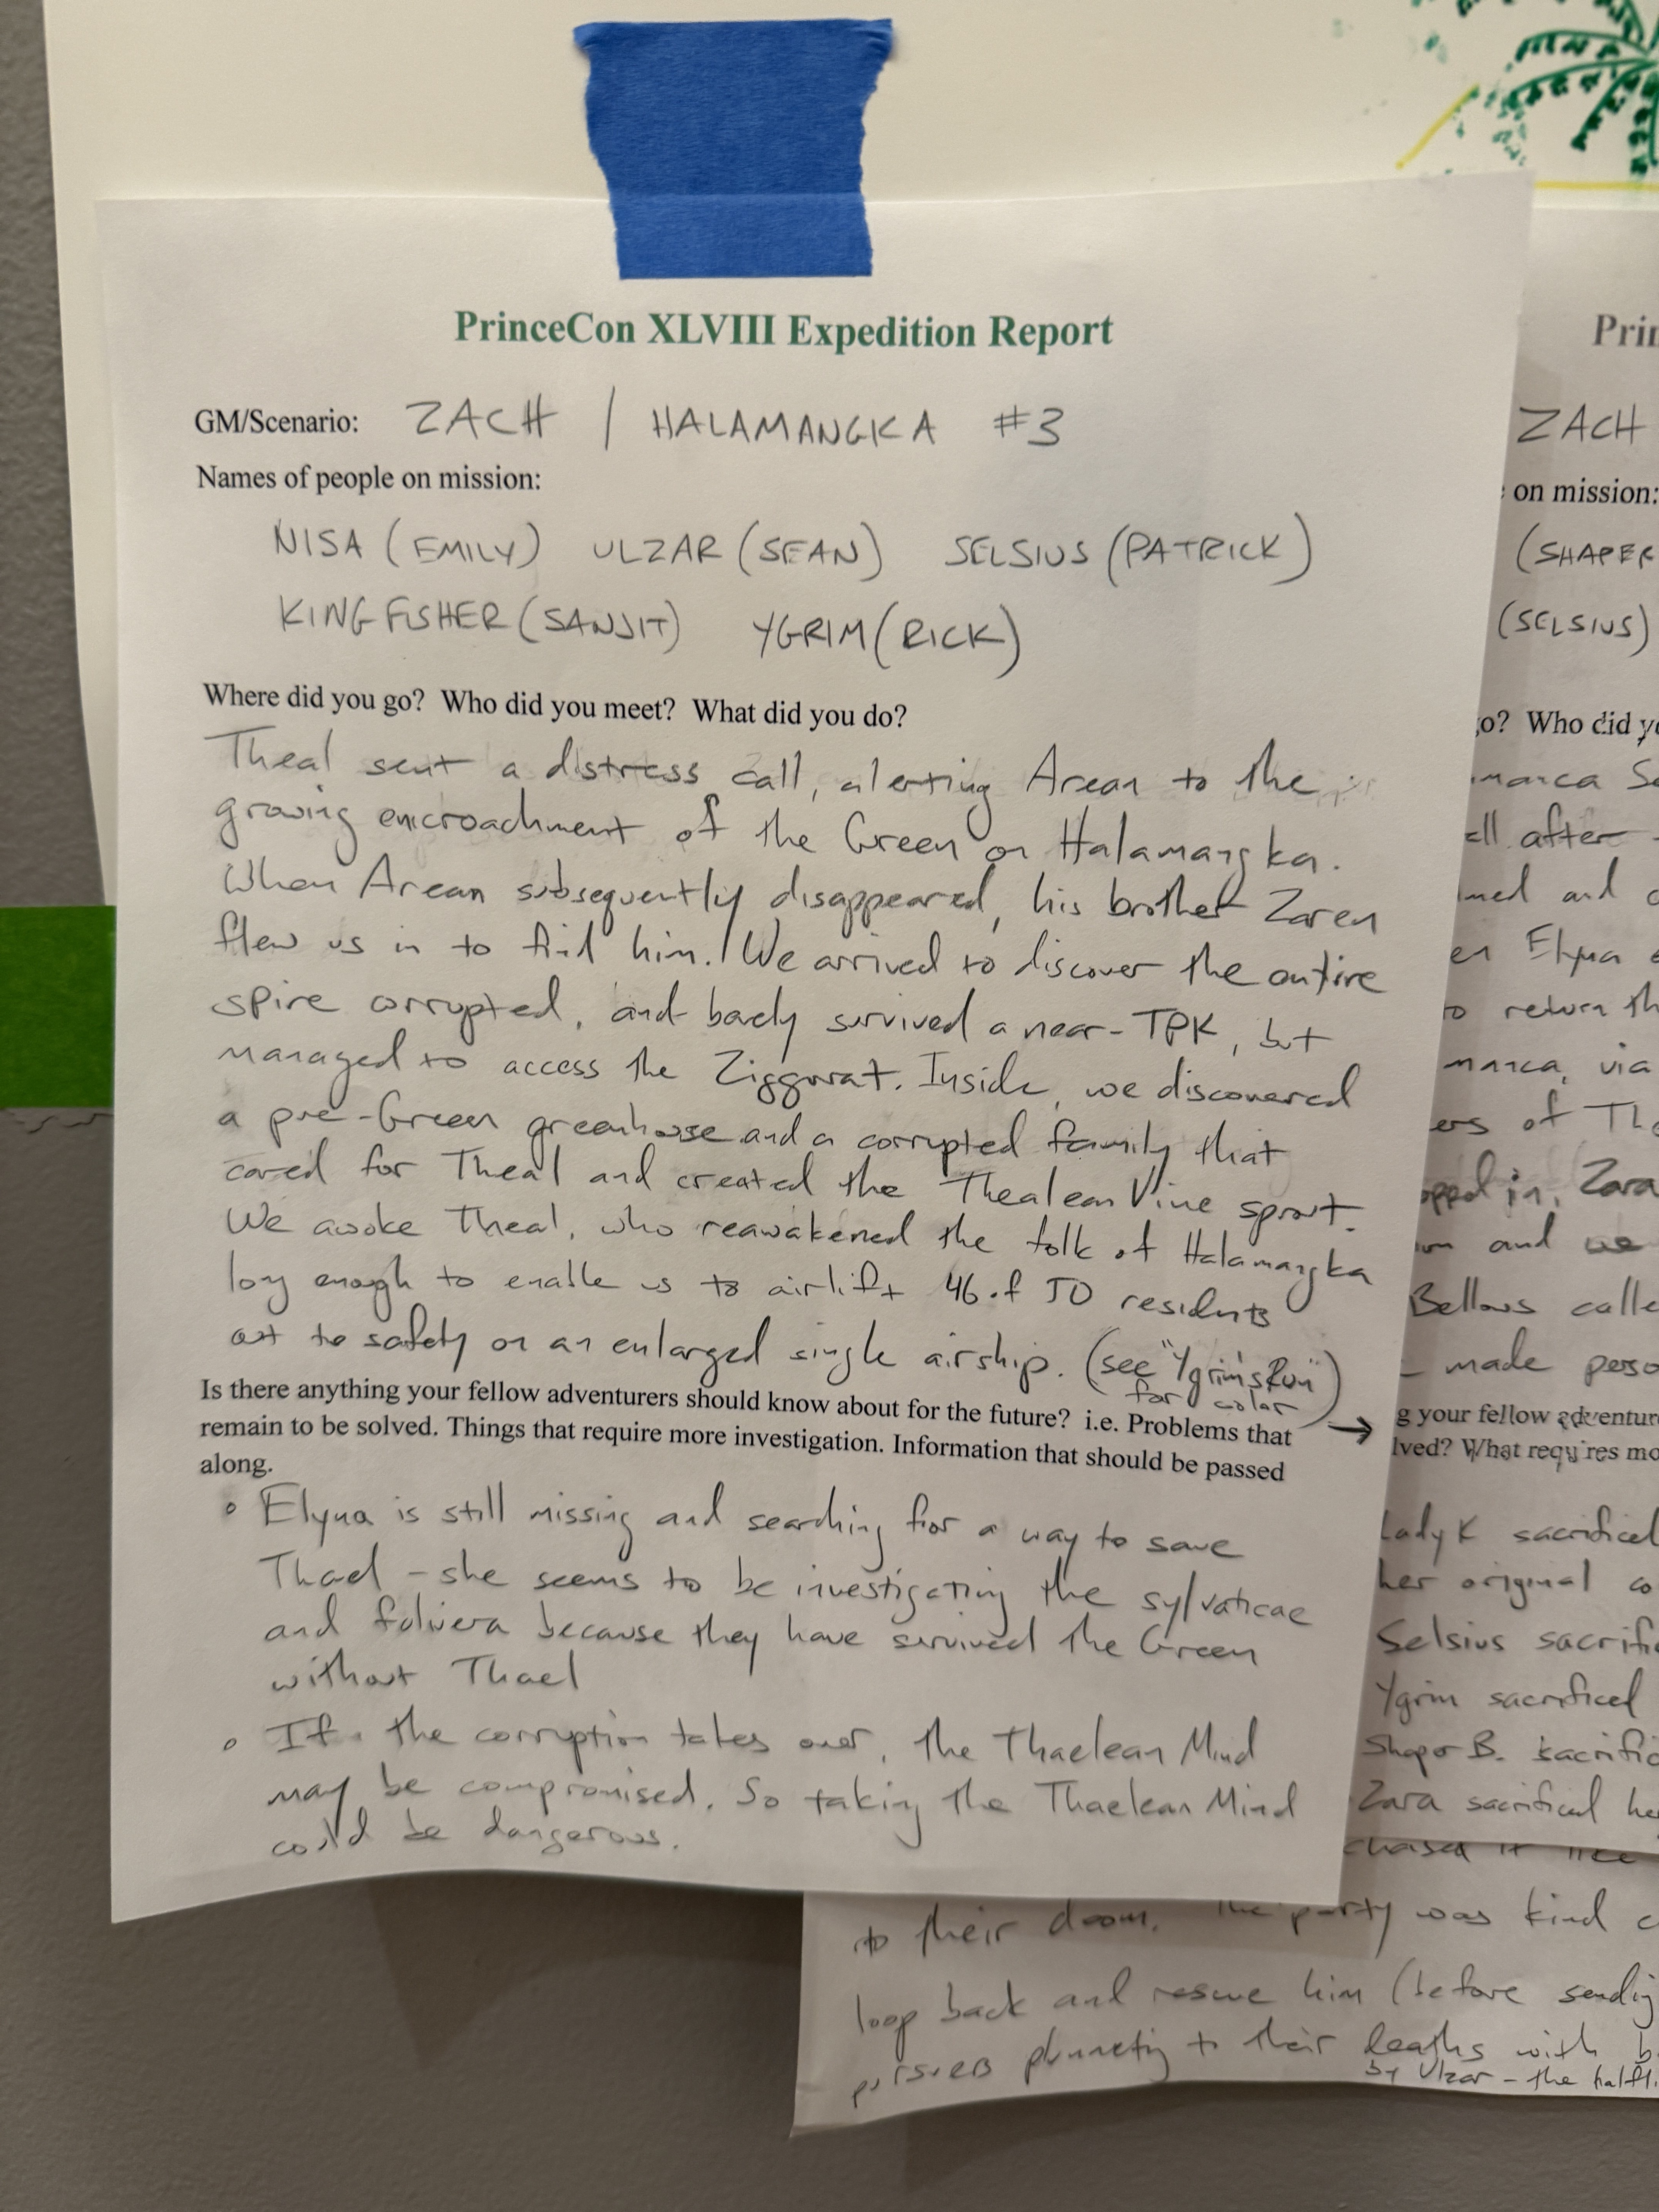 PrinceCon XLVIII Expedition Report
GM/Scenario: ZACH / HALAMANGKA #3
Names of people on mission:
NISA (EMILY) ULZAR (SEAN) SELSIUS (PATRICK)
KINGFISHER (SANJIT) YGRIM (RICK)
Where did you go? Who did you meet? What did you do?
Theal sent a distress call, alerting Arean to the
growing encroachment of the Green on Halamangka.
When Arean subsequently disappeared, his brother Zaren
flew us in to find him. We arrived to discover the entire
spire corrupted, and barely survived a near-TPK, but
managed to access the Ziggurat. Inside, we discovered
a pre-Green greenhouse and a corrupted family that
cared for Theal and created the Thealean Vine sprout.
We awoke Theal, who reawakened the folk of Halamangka
long enough to enable us to airlift 46 of 50 residents
out to safety on an enlarged single airship. (see "Ygrim's Run"
for color) →
Is there anything your fellow adventurers should know about for the future? i.e. Problems that
remain to be solved. Things that require more investigation. Information that should be passed
along.
• Elyna is still missing and searching for a way to save
Thael - she seems to be investigating the sylvaticae
and folivera because they have survived the Green
without Thael
• If the corruption takes over, the Thaelean Mind
may be compromised. So taking the Thaelean Mind
could be dangerous.
Prin
ZACH
on mission:
(SHAPER
(SELSIUS)
o? Who did yo
marca
after
and
en Elyna
to return th
marca, via
ers of
in, Zara
and we
Bellows calle
made perso
g your fellow adventure
lved? What requires mo
Lady K sacrificed
her original co
Selsius sacrific
Ygrim sacrificed
Shaper B. sacrific
Zara sacrificed he
chased it like
to their doom. The party was kind
loop back and rescue him (before sending
pursuers plummeting to their deaths with
by Ulzar - the halfli